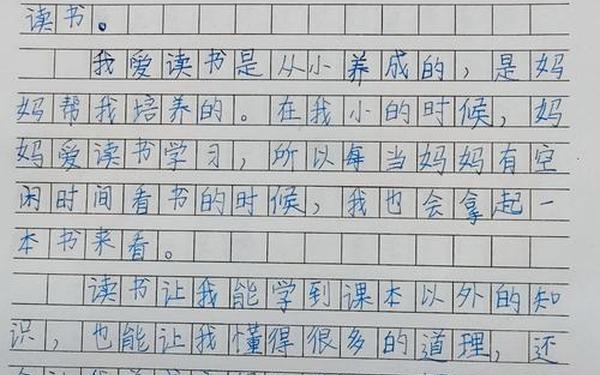 读书。
我爱读书是从小养成的，是妈
妈帮我培养的。在我小的时候，妈
妈爱读书学习，所以每当妈妈有空
闲时间看书的时候，我也会拿起一
本书来看。
读书让我能学到课本以外的知
识，也能让我懂得很多的道理，还